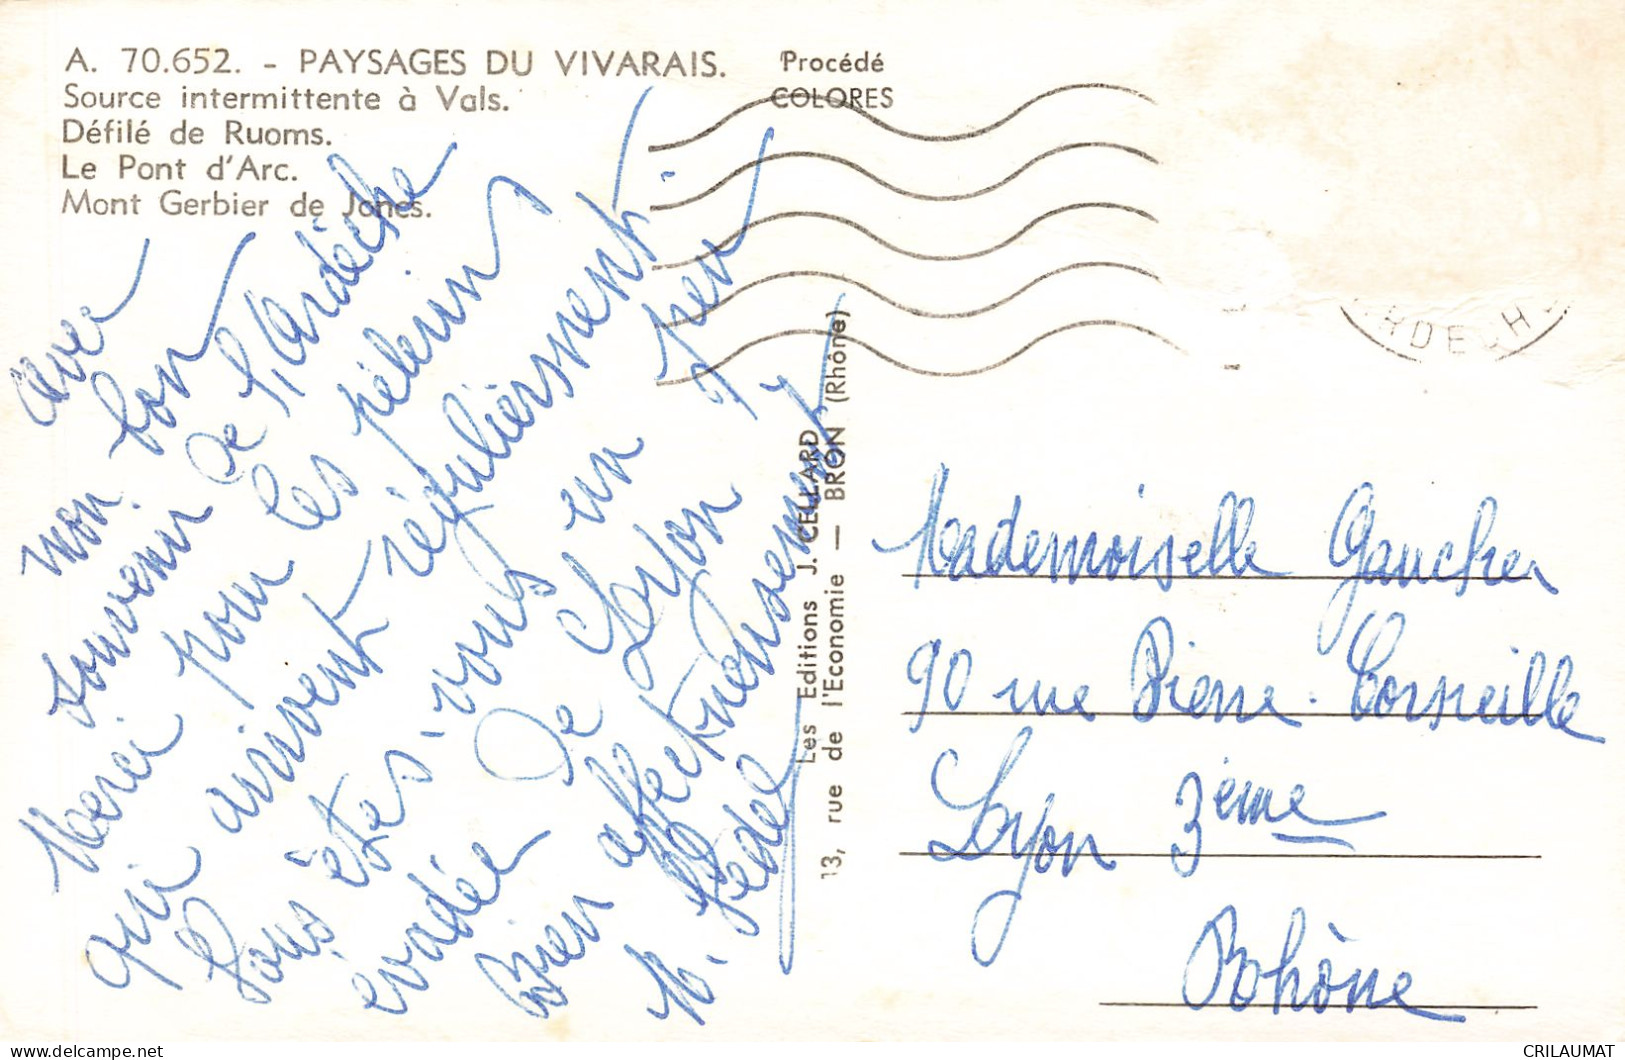 A. 70.652. - PAYSAGES DU VIVARAIS.
Source intermittente à Vals.
Défilé de Ruoms.
Le Pont d'Arc.
Mont Gerbier de Joncs.
Procédé
COLORES
Avec
mon bon
souvenir de l'Ardèche
Merci pour les pélerins
qui arrivent régulièrement.
Vous êtes-vous un peu
évadée de Lyon ?
Bien affectueusement
M.
Les Editions J. CELLARD
13, rue de l'Economie — BRON (Rhône)
RDECH
Mademoiselle Gaucher
90 rue Pierre-Corneille
Lyon 3ème
Rhône
CRILAUMAT